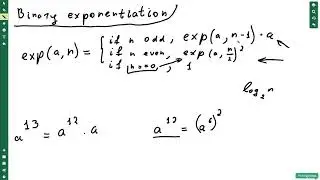 Binary exponentiation
exp(a,n) = { if n odd, exp(a, n-1) · a
if n even, exp(a, n/2)²
if n==0, 1
log₂ n
a¹³ = a¹² · a
a¹² = (a⁶)²